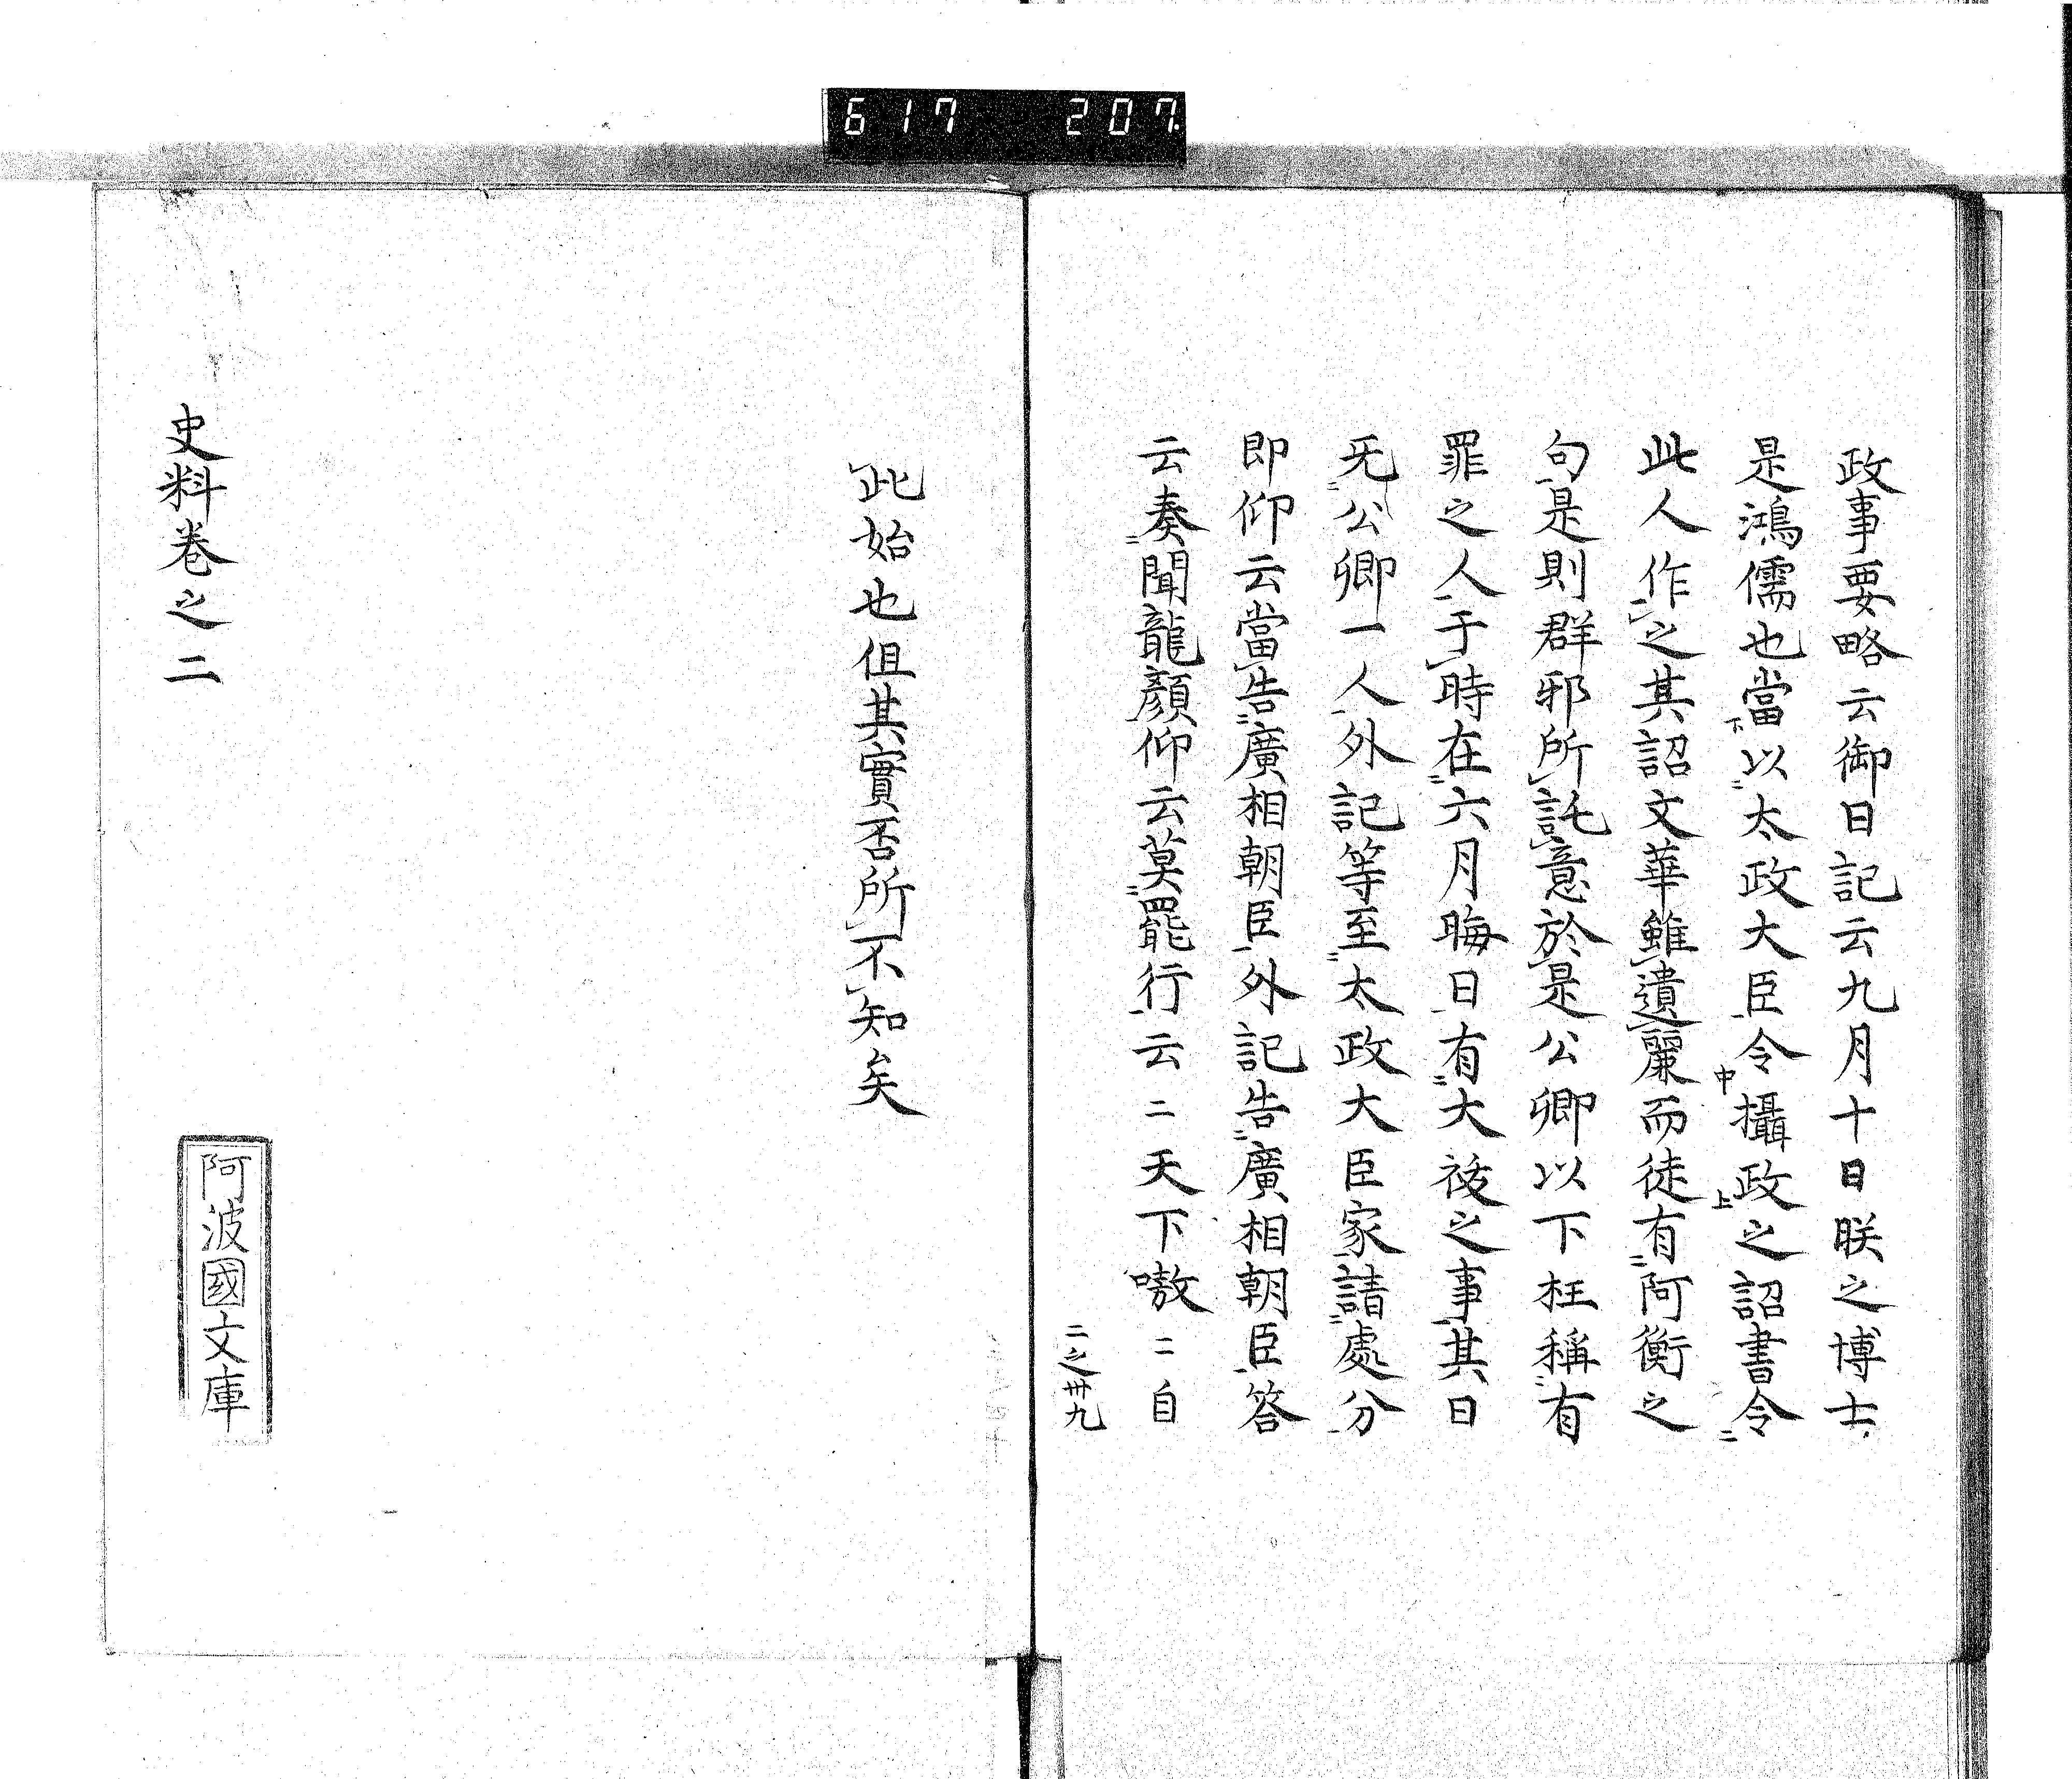 617 207
政事要略云御日記云九月十日朕之博士
是鴻儒也當以太政大臣令攝政之詔書令
此人作之其詔文華雖遺麗而徒有阿衡之
句是則群邪所託意於是公卿以下枉稱有
罪之人于時在六月晦日有大祓之事其日
旡公卿一人外記等至太政大臣家請處分
即仰云當告廣相朝臣外記告廣相朝臣答
云奏聞龍顏仰云莫罷行云二天下嗷二自
二之卌九
此始也但其實否所不知矣
史料卷之二
阿波國文庫